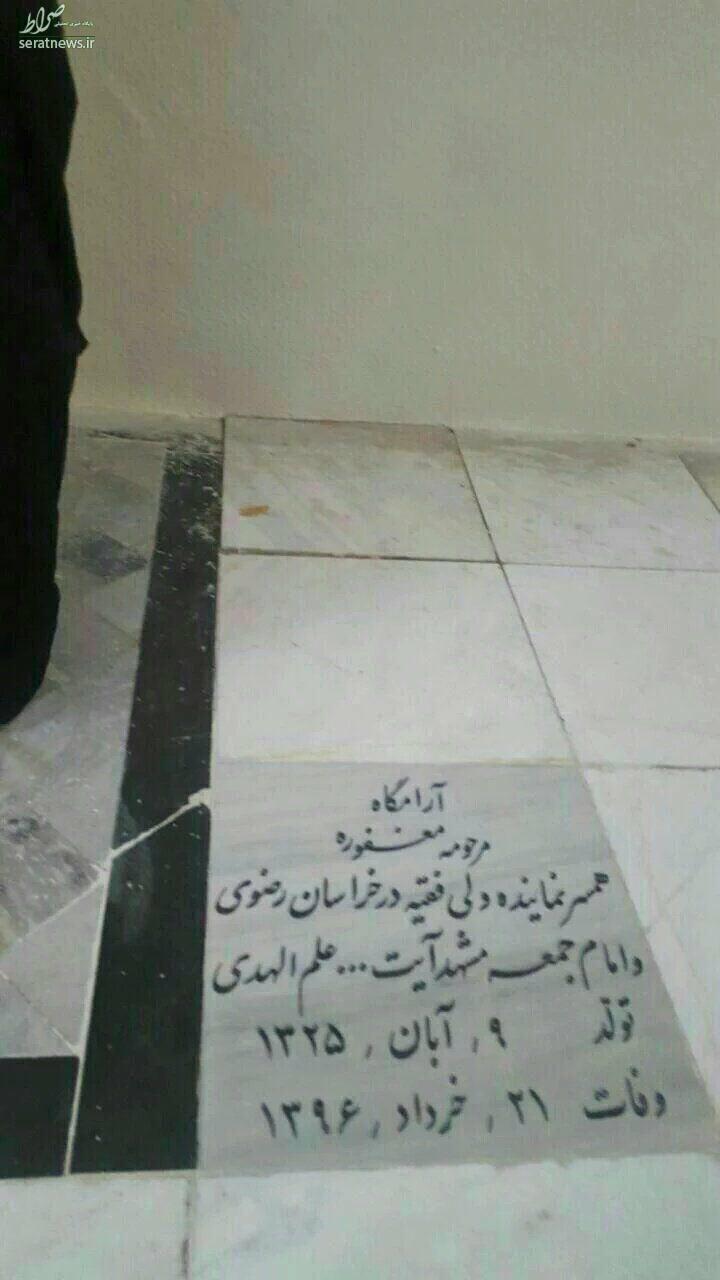 صراط
پایگاه خبری تحلیلی
seratnews.ir
آرامگاه
مرحومه مغفوره
همسر نماینده ولی فقیه در خراسان رضوی
و امام جمعه مشهد آیت... علم الهدی
تولد ۹ , آبان , ۱۳۲۵
وفات ۲۱ , خرداد , ۱۳۹۶